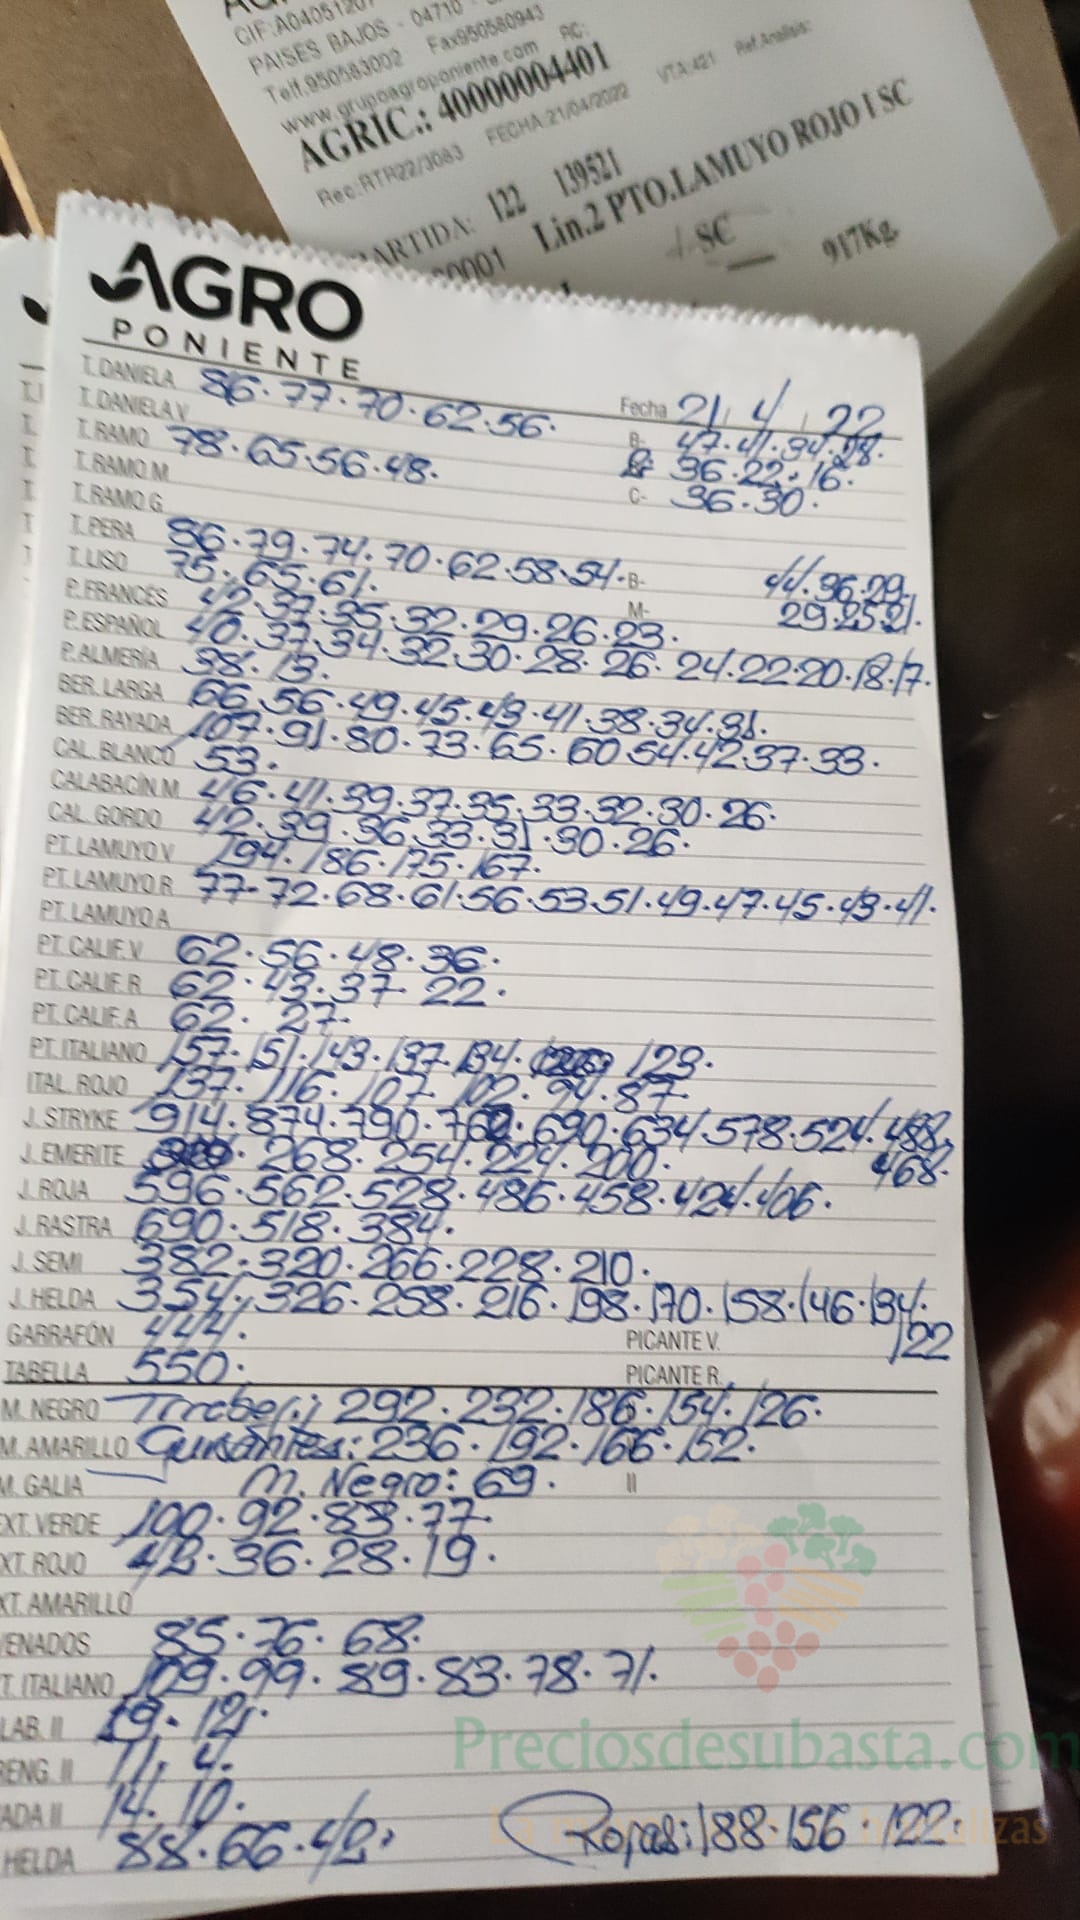 CIF:A04051207
PAISES BAJOS - 04710 -
Telf.950583002 Fax950580943
www.grupoagroponiente.com PC:
AGRIC.: 40000004401
Rec:RTR22/3083 FECHA:21/04/2022 VTA:421 Ref.Analisis:
PARTIDA: 122 139521
0001 Lin.2 PTO.LAMUYO ROJO I SC
SC 917Kg
AGRO
PONIENTE
T. DANIELA 86·77·70·62·56· Fecha 21/4/22
T. DANIELA V B- 47·41·34·28·
T. RAMO 78·65·56·48· 36·22·16·
T. RAMO M C- 36·30·
T. RAMO G
T. PERA 86·79·74·70·62·58·54· B- 44·36·29·
T. LISO 75·65·61· M- 29·25·21·
P. FRANCÉS 42·37·35·32·29·26·23·
P. ESPAÑOL 40·37·34·32·30·28·26·24·22·20·18·17·
P. ALMERÍA 38·13·
BER. LARGA 66·56·49·45·43·41·38·34·31·
BER. RAYADA 107·91·80·73·65·60·54·42·37·33·
CAL. BLANCO 53·
CALABACÍN M. 46·41·39·37·35·33·32·30·26·
CAL. GORDO 42·39·36·33·31·30·26·
PT. LAMUYO V 194·186·175·167·
PT. LAMUYO R 77·72·68·61·56·53·51·49·47·45·43·41·
PT. LAMUYO A
PT. CALIF. V 62·56·48·36·
PT. CALIF. R 62·43·37·22·
PT. CALIF. A 62·27·
PT. ITALIANO 157·151·143·137·134· 123·
ITAL. ROJO 137·116·107·102·94·87·
J. STRYKE 914·874·790·762·690·634·578·524·488·
468·
J. EMERITE 268·254·224·200·
J. ROJA 596·562·528·486·458·424·406·
J. RASTRA 690·518·384·
J. SEMI 382·320·266·228·210·
J. HELDA 354·326·258·216·198·170·158·146·134·
122
GARRAFÓN 444· PICANTE V.
TABELLA 550· PICANTE R.
M. NEGRO 292·232·186·154·126·
M. AMARILLO Guisantes: 236·192·166·152·
M. GALIA M. Negro: 69· II
EXT. VERDE 100·92·83·77·
EXT. ROJO 42·36·28·19·
XT. AMARILLO
VENADOS 85·76·68·
T. ITALIANO 109·99·89·83·78·71·
LAB. II 19·12·
RENG. II 11·4·
ADA II 14·10·
HELDA 88·66·42·
Rojas: 188·156·122·
Preciosdesubasta.com